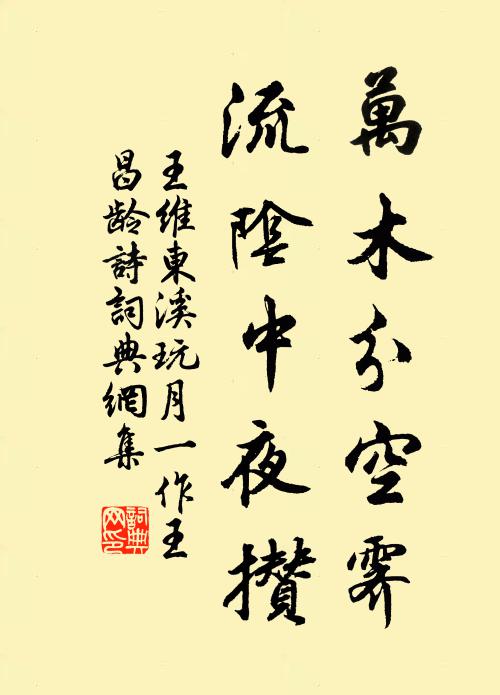 萬木分空霽
流陰中夜攢
王維東溪玩月一作王
昌龄詩詞典網集
詞典
网印